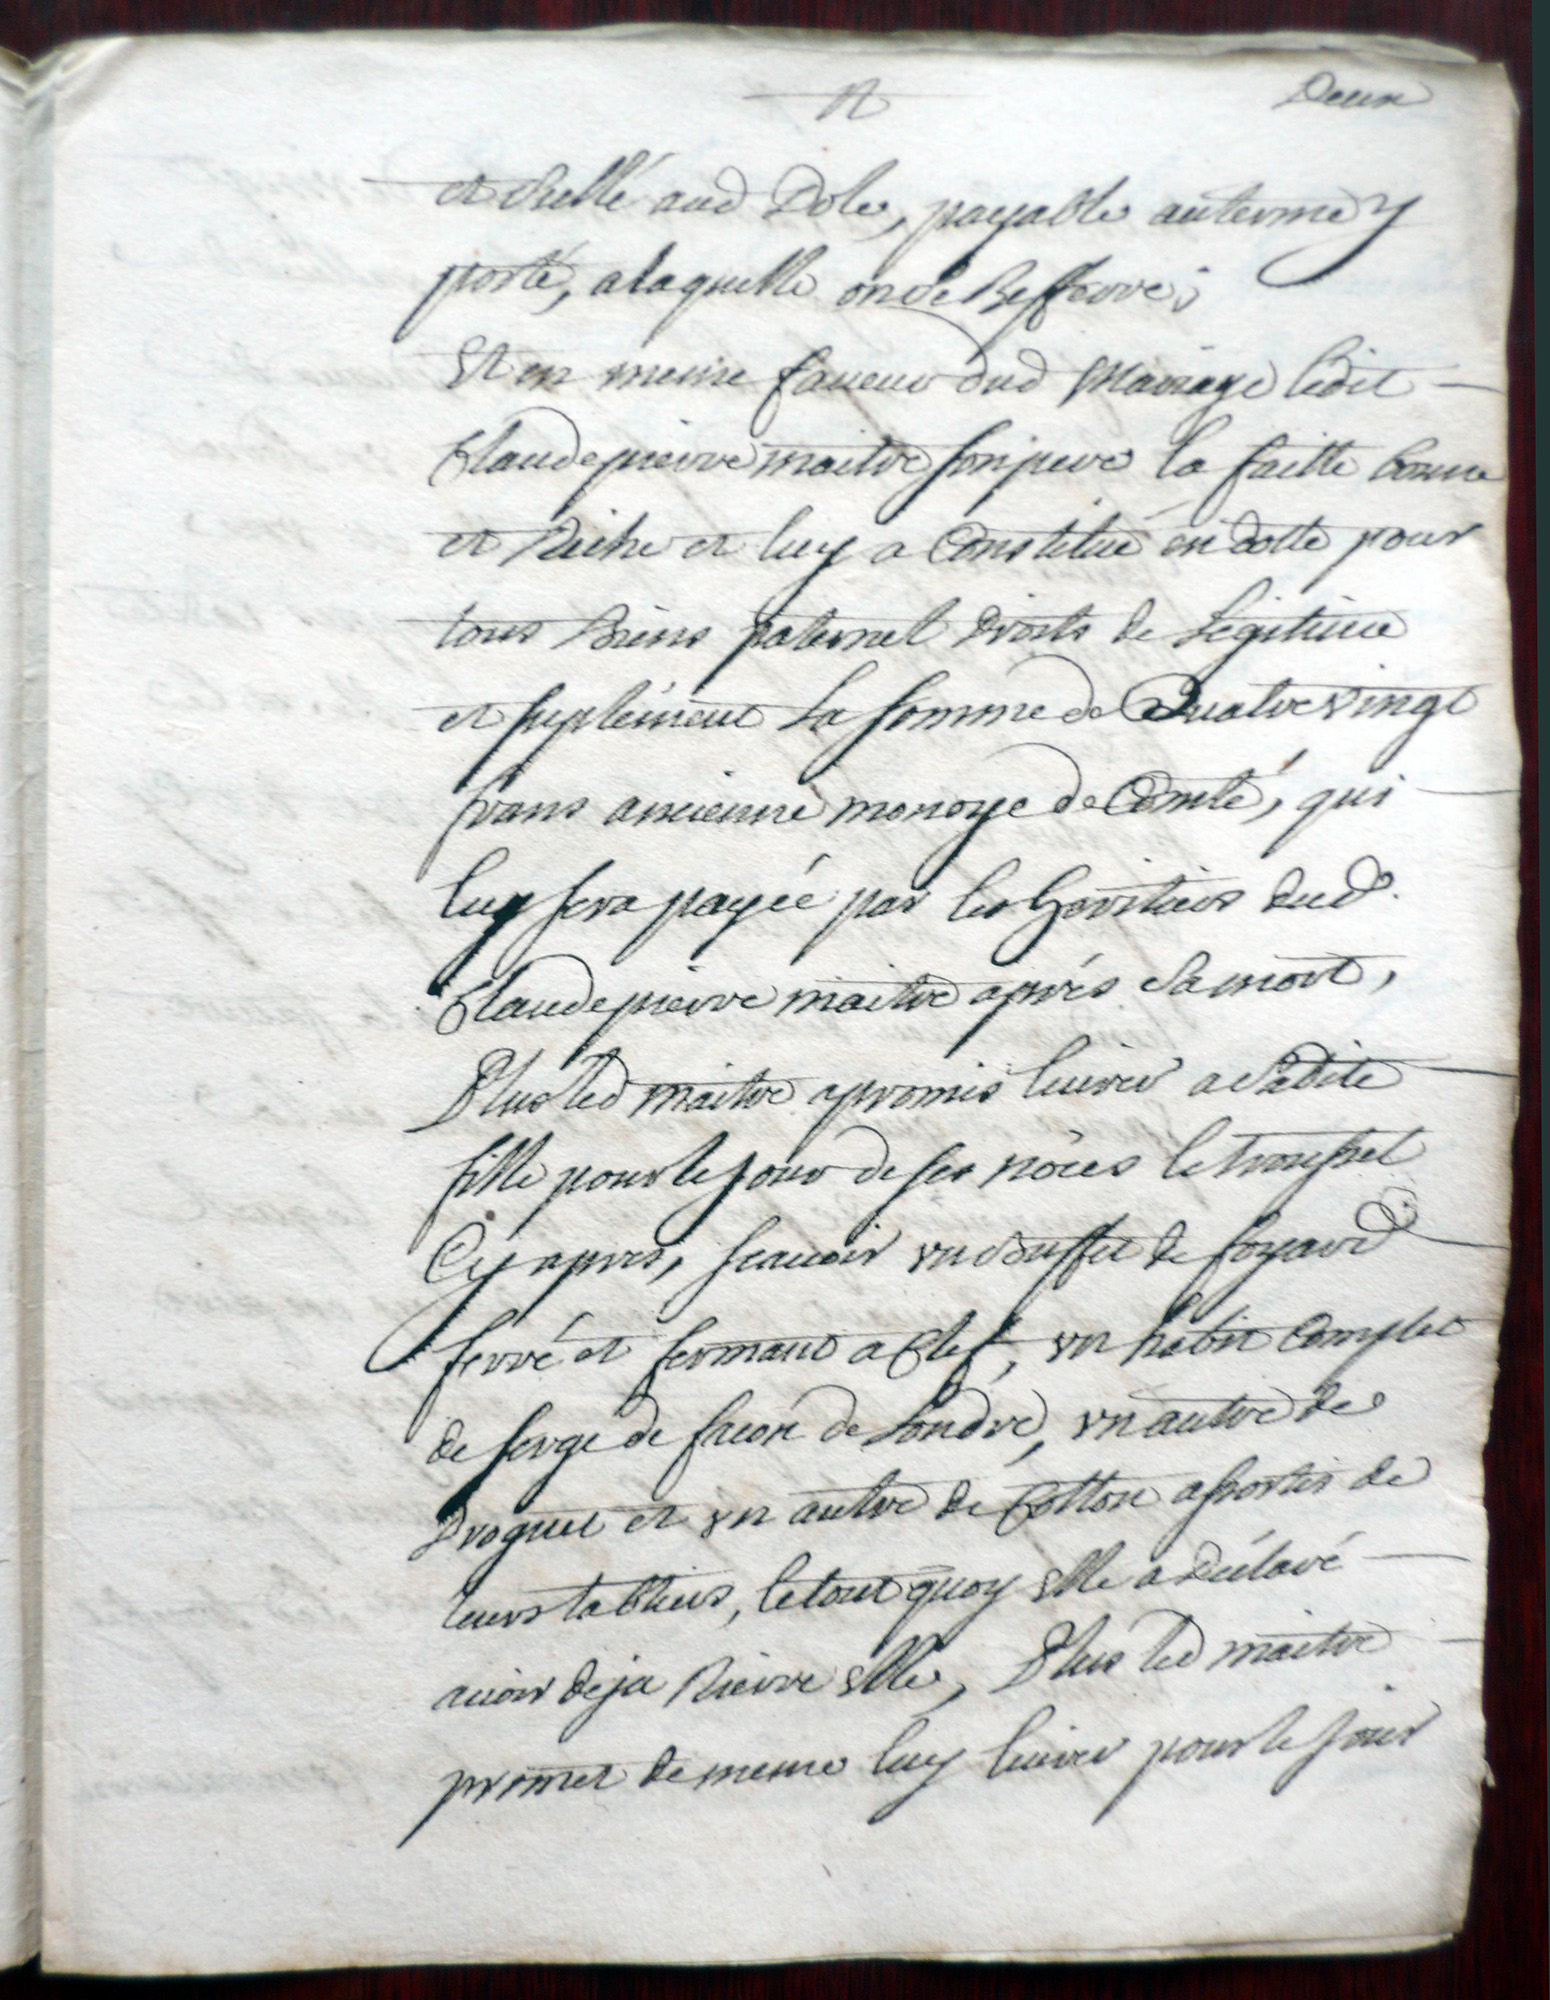 Deux
et scellé aud Dole, payable au terme y
porté, a laquelle on se Refferre;
Et en meme faueur dud Mariage ledit
Claude pierre maitre son pere la faitte bonne
et Riche et luy a Constitué en dotte pour
tous Biens paternel droits de Légitime
et suplément La somme de Quatre vingt
frans ancienne monoye de Comté, qui
luy sera payée par les heritiers dud.
Claude pierre maitre aprés sa mort,
Plus led maitre a promis liurer a sadite
fille pour le jour de ses nôces le troussel
Cy apres, scauoir un buffet de foyard
ferré et fermant a Clef, un habit Complet
de serge de facon de Londre, un autre de
Droguet et un autre de Cotton assortis de
leurs tabliers, le tout quoy Elle a déclaré
auoir deja Rierre Elle, Plus led maitre
promet de meme luy liurer pour le jour